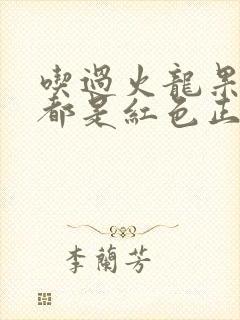 喫過火龍果
都是紅色正
李蘭芳